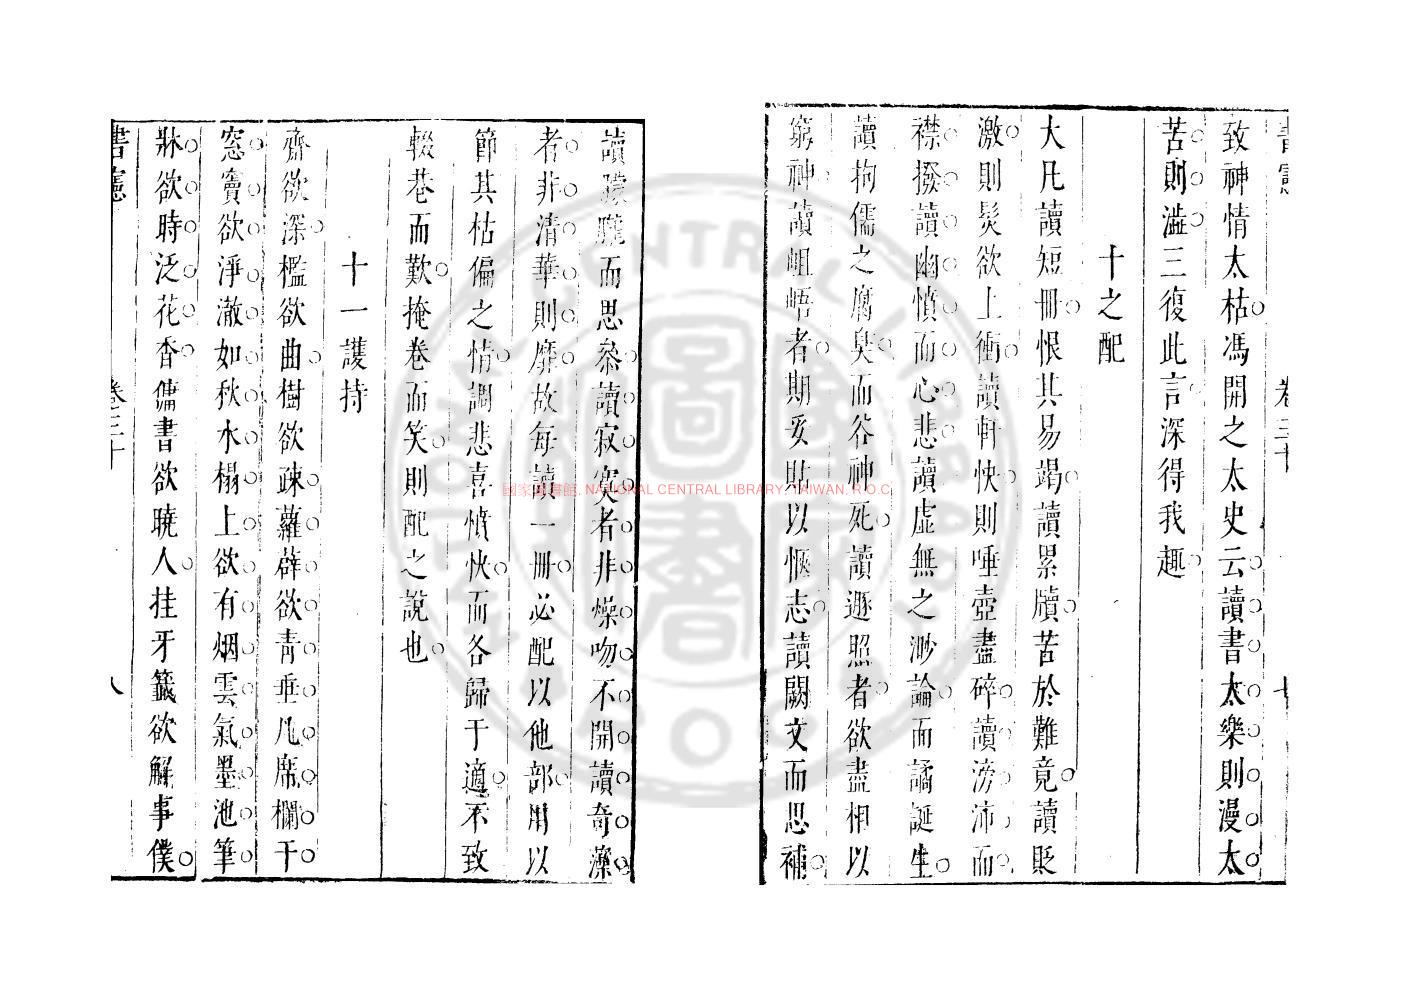 書憲 卷三十 七
致神情太枯馮開之太史云讀書太樂則漫太
苦則澁三復此言深得我趣
十之配
大凡讀短冊恨其易竭讀累牘苦於難竟讀貶
激則髮欲上衝讀軒快則唾壺盡碎讀滂沛而
襟撥讀幽憤而心悲讀虛無之渺論而譎誕生
讀拘儒之腐臭而谷神死讀遯照者欲盡相以
窮神讀岨峿者期妥貼以愜志讀闕文而思補
讀朦朧而思叅讀寂寞者非燥吻不開讀奇㵝
者非清華則靡故每讀一冊必配以他部用以
節其枯偏之情調悲喜憤快而各歸于適不致
輟巷而歎掩卷而笑則配之說也
十一護持
齋欲深檻欲曲樹欲疎蘿薜欲青垂几席欄干
窓竇欲淨澈如秋水榻上欲有烟雲氣墨池筆
牀欲時泛花香傭書欲曉人挂牙籤欲解事僕
書憲 卷三十 八
國家圖書館, NATIONAL CENTRAL LIBRARY, TAIWAN, R.O.C